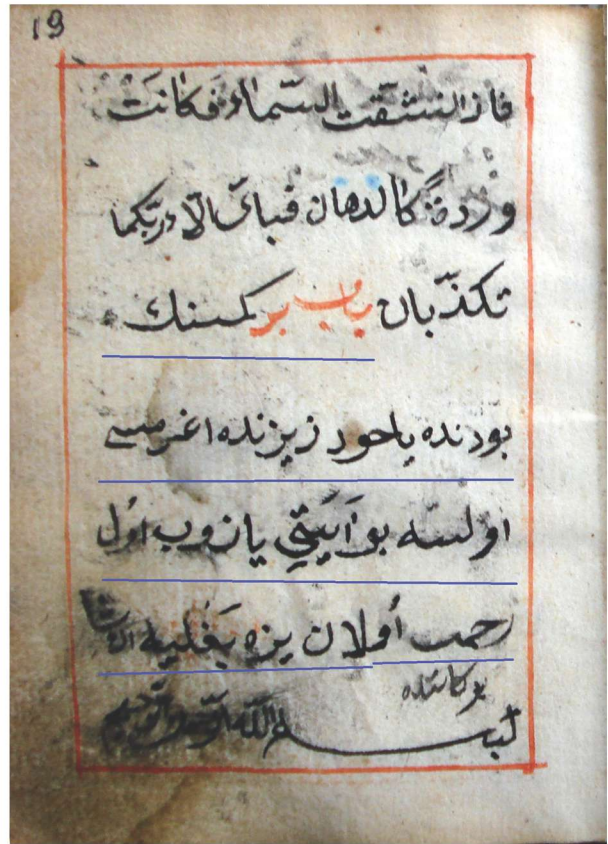 19
فاذا انشقت السّماء فكانت
وردةً كالدهان فبایّ الآء ربّكما
تكذّبان باب بر كمسنك
بودنده یاحود زیرنده اغرمسی
اولسه بو اَیَتِی یازوب اوُل
زحمت اوُلان یره بَغْلیه
بسم اللّه الرّحمن الرّحیم